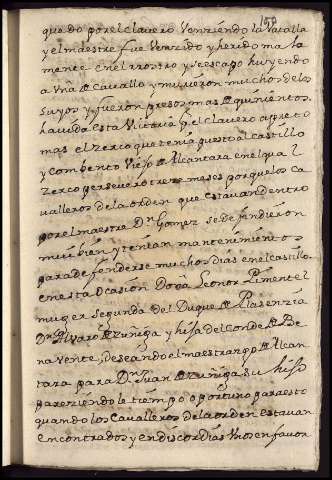 159
quedo por el clavero Venziendo la vatalla
y el maestre fue Venzido y herido mala
mente en el rostro y se escapo huyendo
a Vña de Cavallo y murieron muchos de los
suyos y fueron presos mas de quinientos
havida esta Victoria el clavero apreto
mas el Zerco que tenia puesto al castillo
y combento Viejo de Alcantara en el qual
Zerco persevero treze meses porque los ca
valleros de la orden que estavan dentro
por el maestre Dn Gomez se defendieron
mui bien y tenian mantenimientos
para defenderse muchos dias en el castillo.
en esta Ocasion Doña Leonor Pimentel
muger segunda del Duque de Plasenzia
Dn Alvaro de Zuñiga y hija del Conde de Be
navente, deseando el maestrazgo de Alcan
tara para Dn Juan de Zuñiga su hijo
pareziendole tiempo oportuno para esto
quando los Cavalleros de la orden estavan
encontrados y en discordias Vnos en favor